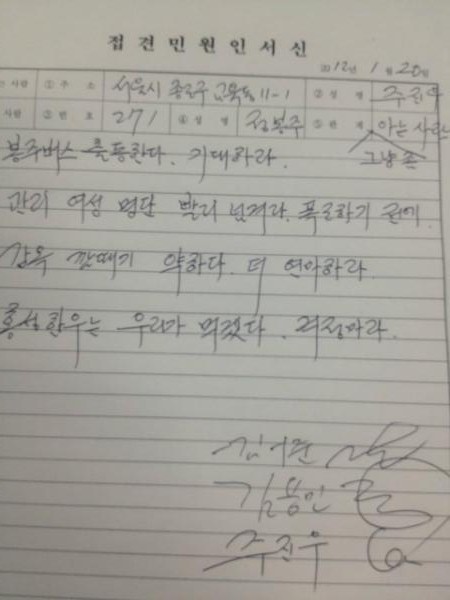 접견민원인서신
2012년 1월 20일
는 사람 ① 주 소 서울시 종로구 교북동 11-1 ② 성 명 주진우
사람 ③ 번 호 271 ④ 성 명 정봉주 ⑤ 관 계 아는 사람
봉주버스 출동한다. 기대하라. 그냥
관리 여성 명단 빨리 넘겨라. 폭로하기 전에.
감옥 깔때기 약하다. 더 연마하라
홍성한우는 우리가 먹겠다. 걱정마라.
김어준
김용민
주진우